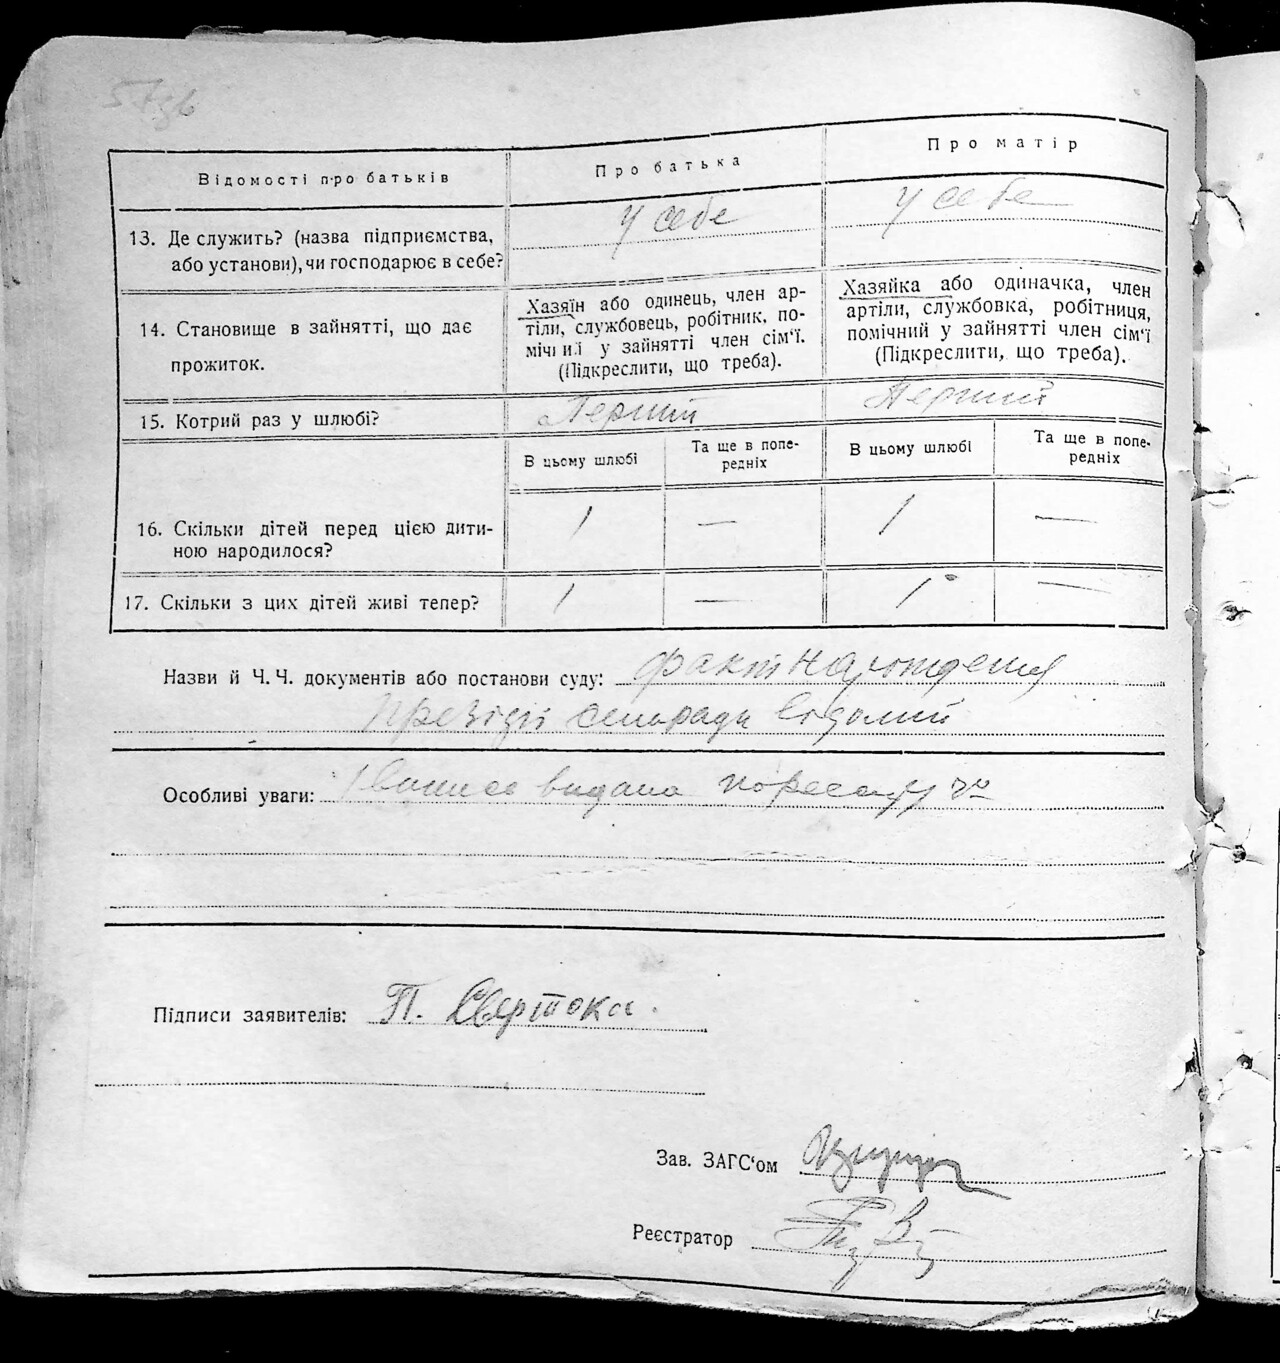 Відомості про батьків
Про батька
Про матір
13. Де служить? (назва підприємства,
або установи), чи господарює в себе?
у себе
у себе
14. Становище в зайнятті, що дає
прожиток.
Хазяїн або одинець, член ар-
тіли, службовець, робітник, по-
мічний у зайнятті член сім'ї.
(Підкреслити, що треба).
Хазяйка або одиначка, член
артіли, службовка, робітниця,
помічний у зайнятті член сім'ї
(Підкреслити, що треба).
15. Котрий раз у шлюбі?
Перший
Перший
В цьому шлюбі
Та ще в попе-
редніх
В цьому шлюбі
Та ще в попе-
редніх
16. Скільки дітей перед цією дити-
ною народилося?
1 — 1 —
17. Скільки з цих дітей живі тепер?
1 — 1 —
Назви й Ч. Ч. документів або постанови суду: факт народження
Президії сельради відомий
Особливі уваги: видана
Підписи заявителів: П. Свертока
Зав. ЗАГС'ом
Реєстратор